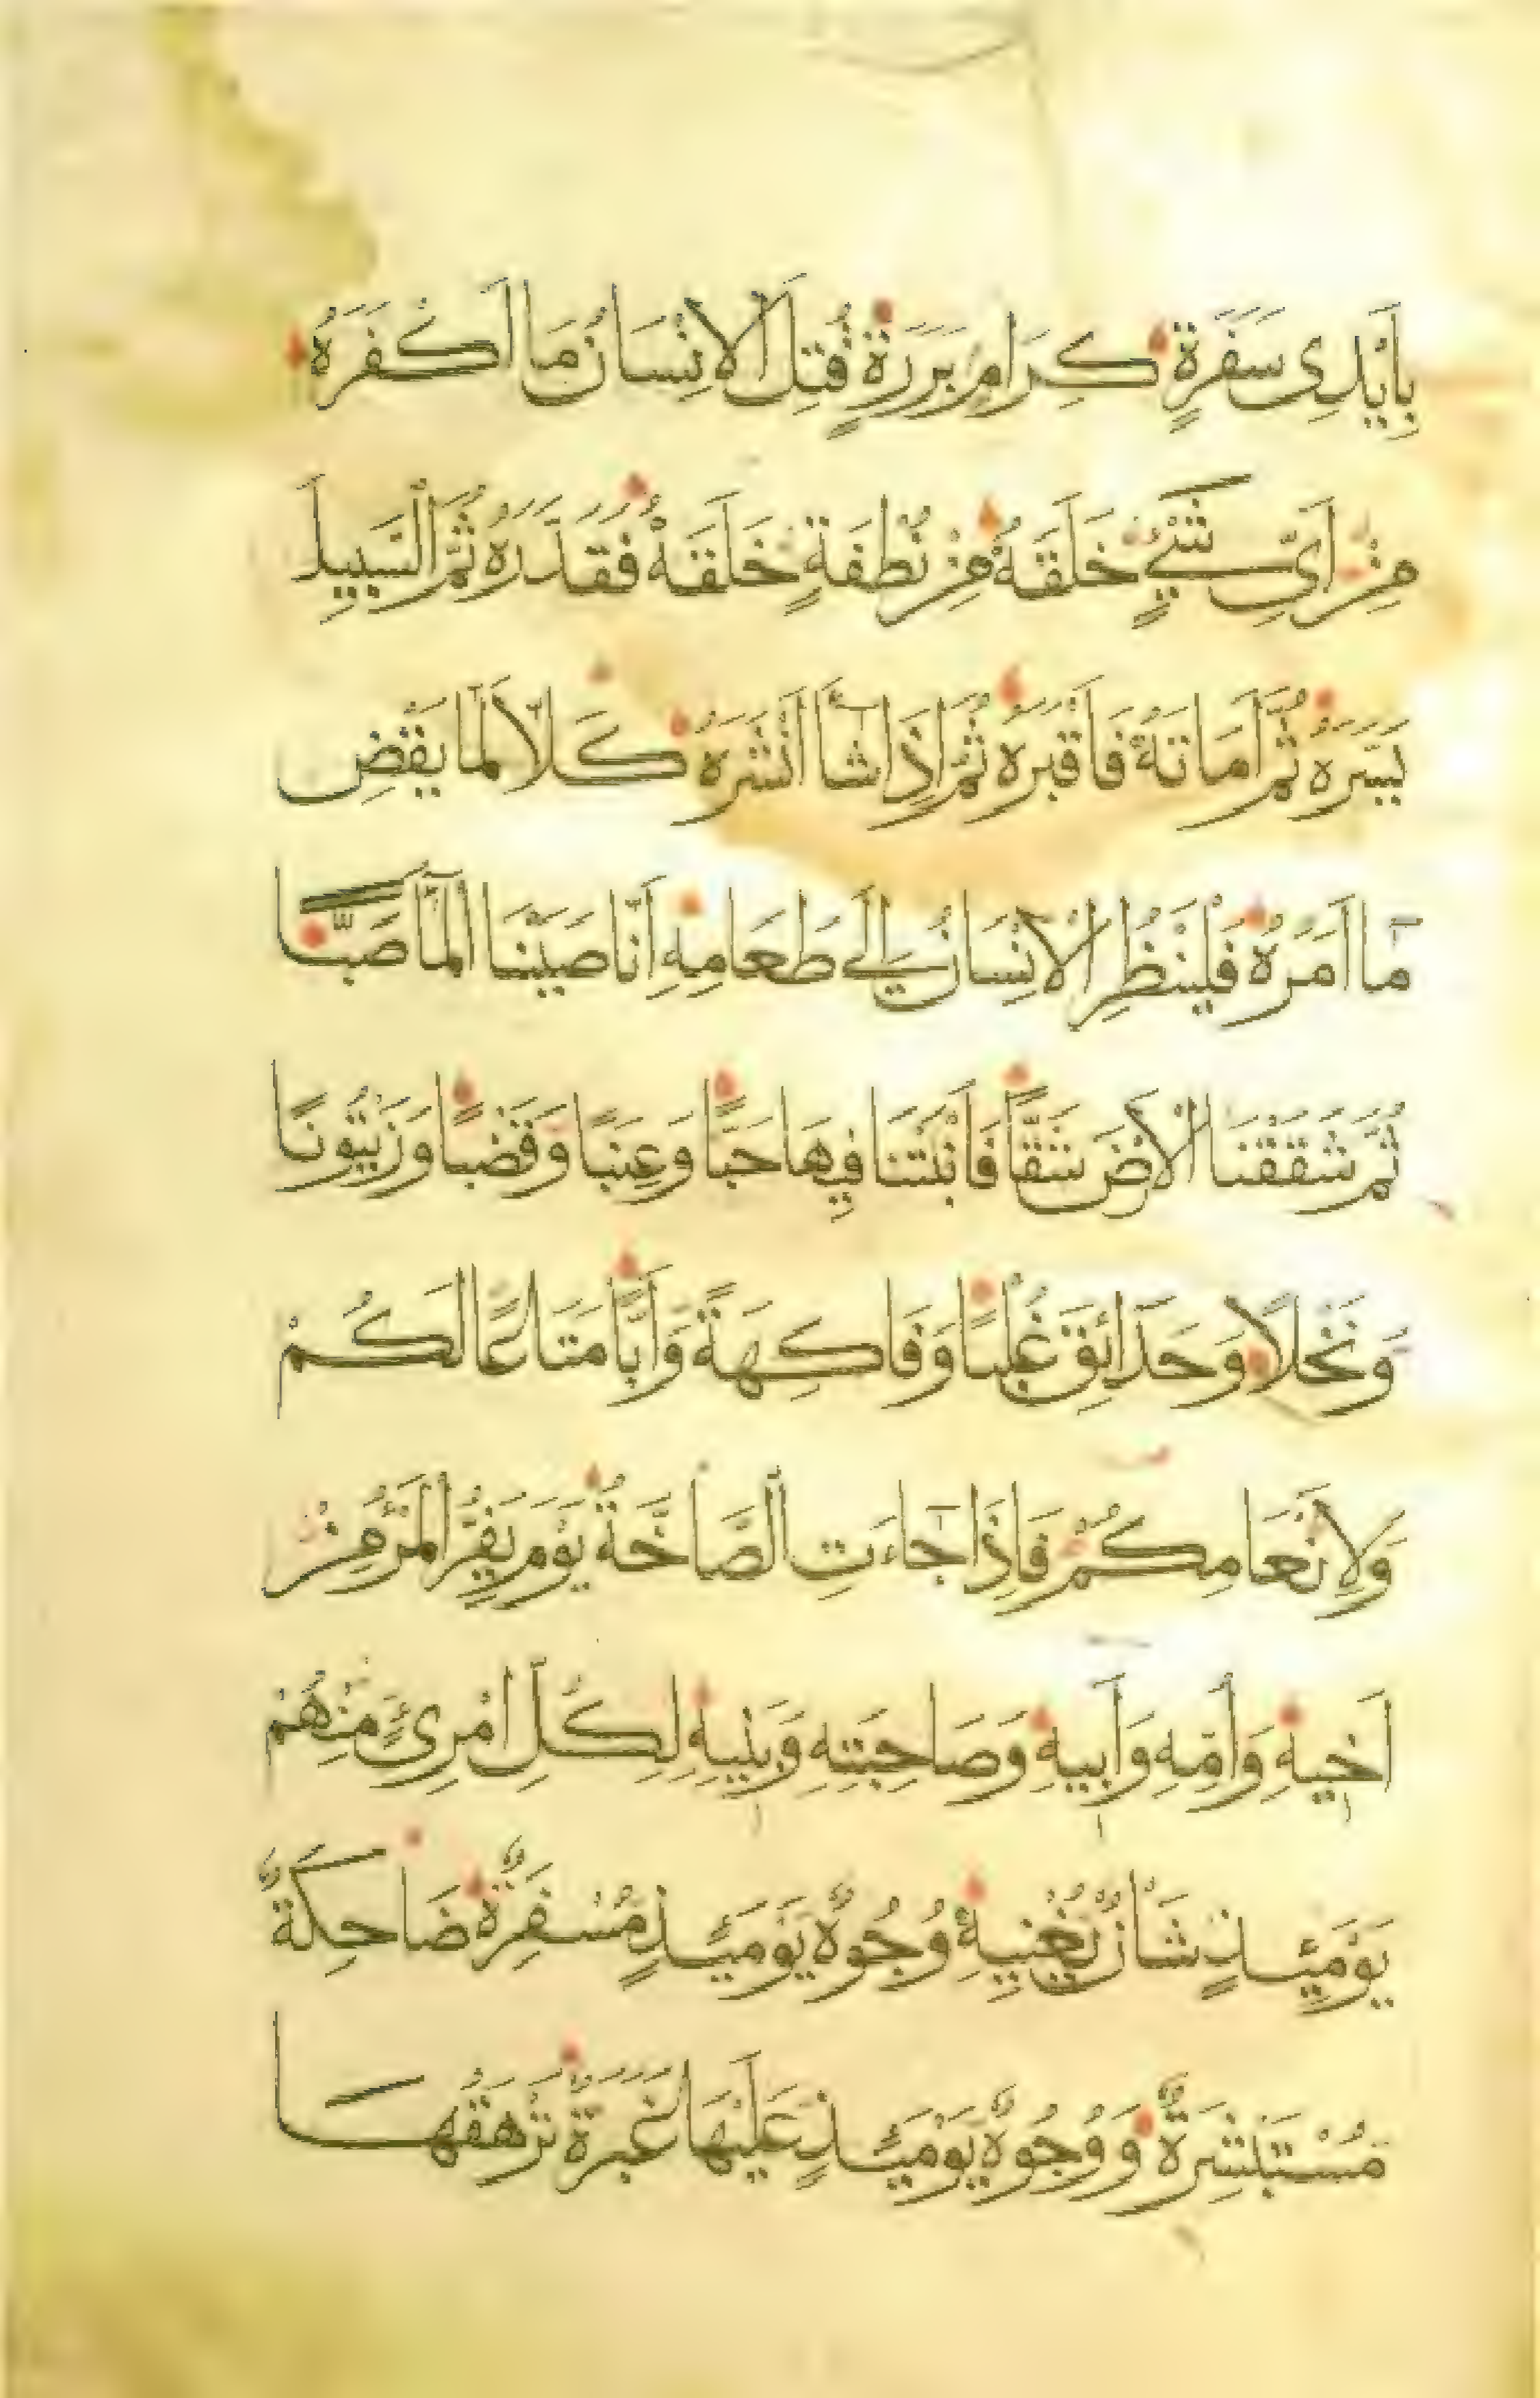 بِاَيْدِى سَفَرَةٍ كِرَامٍ بَرَرَةٍ قُتِلَ الْاِنْسَانُ مَا اَكْفَرَهُ
مِنْ اَىِّ شَىْءٍ خَلَقَهُ مِنْ نُطْفَةٍ خَلَقَهُ فَقَدَّرَهُ ثُمَّ السَّبِيلَ
يَسَّرَهُ ثُمَّ اَمَاتَهُ فَاَقْبَرَهُ ثُمَّ اِذَا شَآ اَنْشَرَهُ كَلَّا لَمَّا يَقْضِ
مَآ اَمَرَهُ فَلْيَنْظُرِ الْاِنْسَانُ اِلَى طَعَامِهِ اَنَّا صَبَبْنَا الْمَآ صَبًّا
ثُمَّ شَقَقْنَا الْاَرْضَ شَقًّا فَاَنْبَتْنَا فِيهَا حَبًّا وَعِنَبًا وَقَضْبًا وَزَيْتُونًا
وَنَخْلًا وَحَدَائِقَ غُلْبًا وَفَاكِهَةً وَاَبًّا مَتَاعًا لَكُمْ
وَلِاَنْعَامِكُمْ فَاِذَا جَآءَتِ الصَّاخَّةُ يَوْمَ يَفِرُّ الْمَرْءُ مِنْ
اَخِيهِ وَاُمِّهِ وَاَبِيهِ وَصَاحِبَتِهِ وَبَنِيهِ لِكُلِّ امْرِئٍ مِنْهُمْ
يَوْمَئِذٍ شَاْنٌ يُغْنِيهِ وُجُوهٌ يَوْمَئِذٍ مُسْفِرَةٌ ضَاحِكَةٌ
مُسْتَبْشِرَةٌ وَوُجُوهٌ يَوْمَئِذٍ عَلَيْهَا غَبَرَةٌ تَرْهَقُهَا